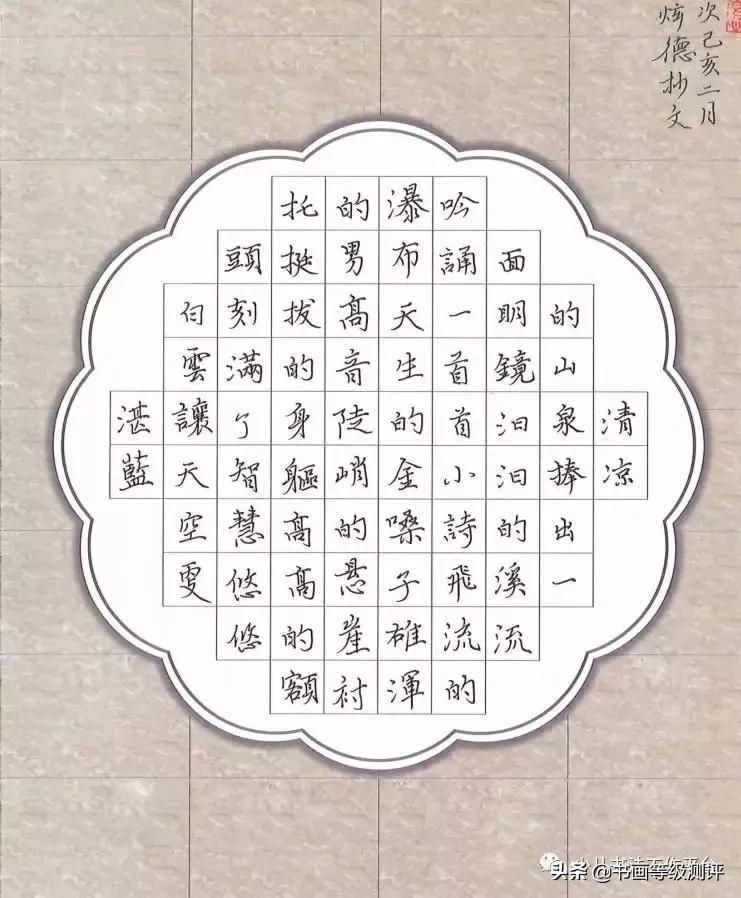 清凉
的山泉捧出一
面明鏡汩汩的溪流
吟誦一首首小詩飛流的
瀑布天生的金嗓子雄渾
的男高音陡峭的悬崖衬
托挺拔的身軀高高的額
頭刻滿了智慧悠悠
白雲讓天空变
湛藍
次己亥二月
炫德抄文
头条 @书画等级测评